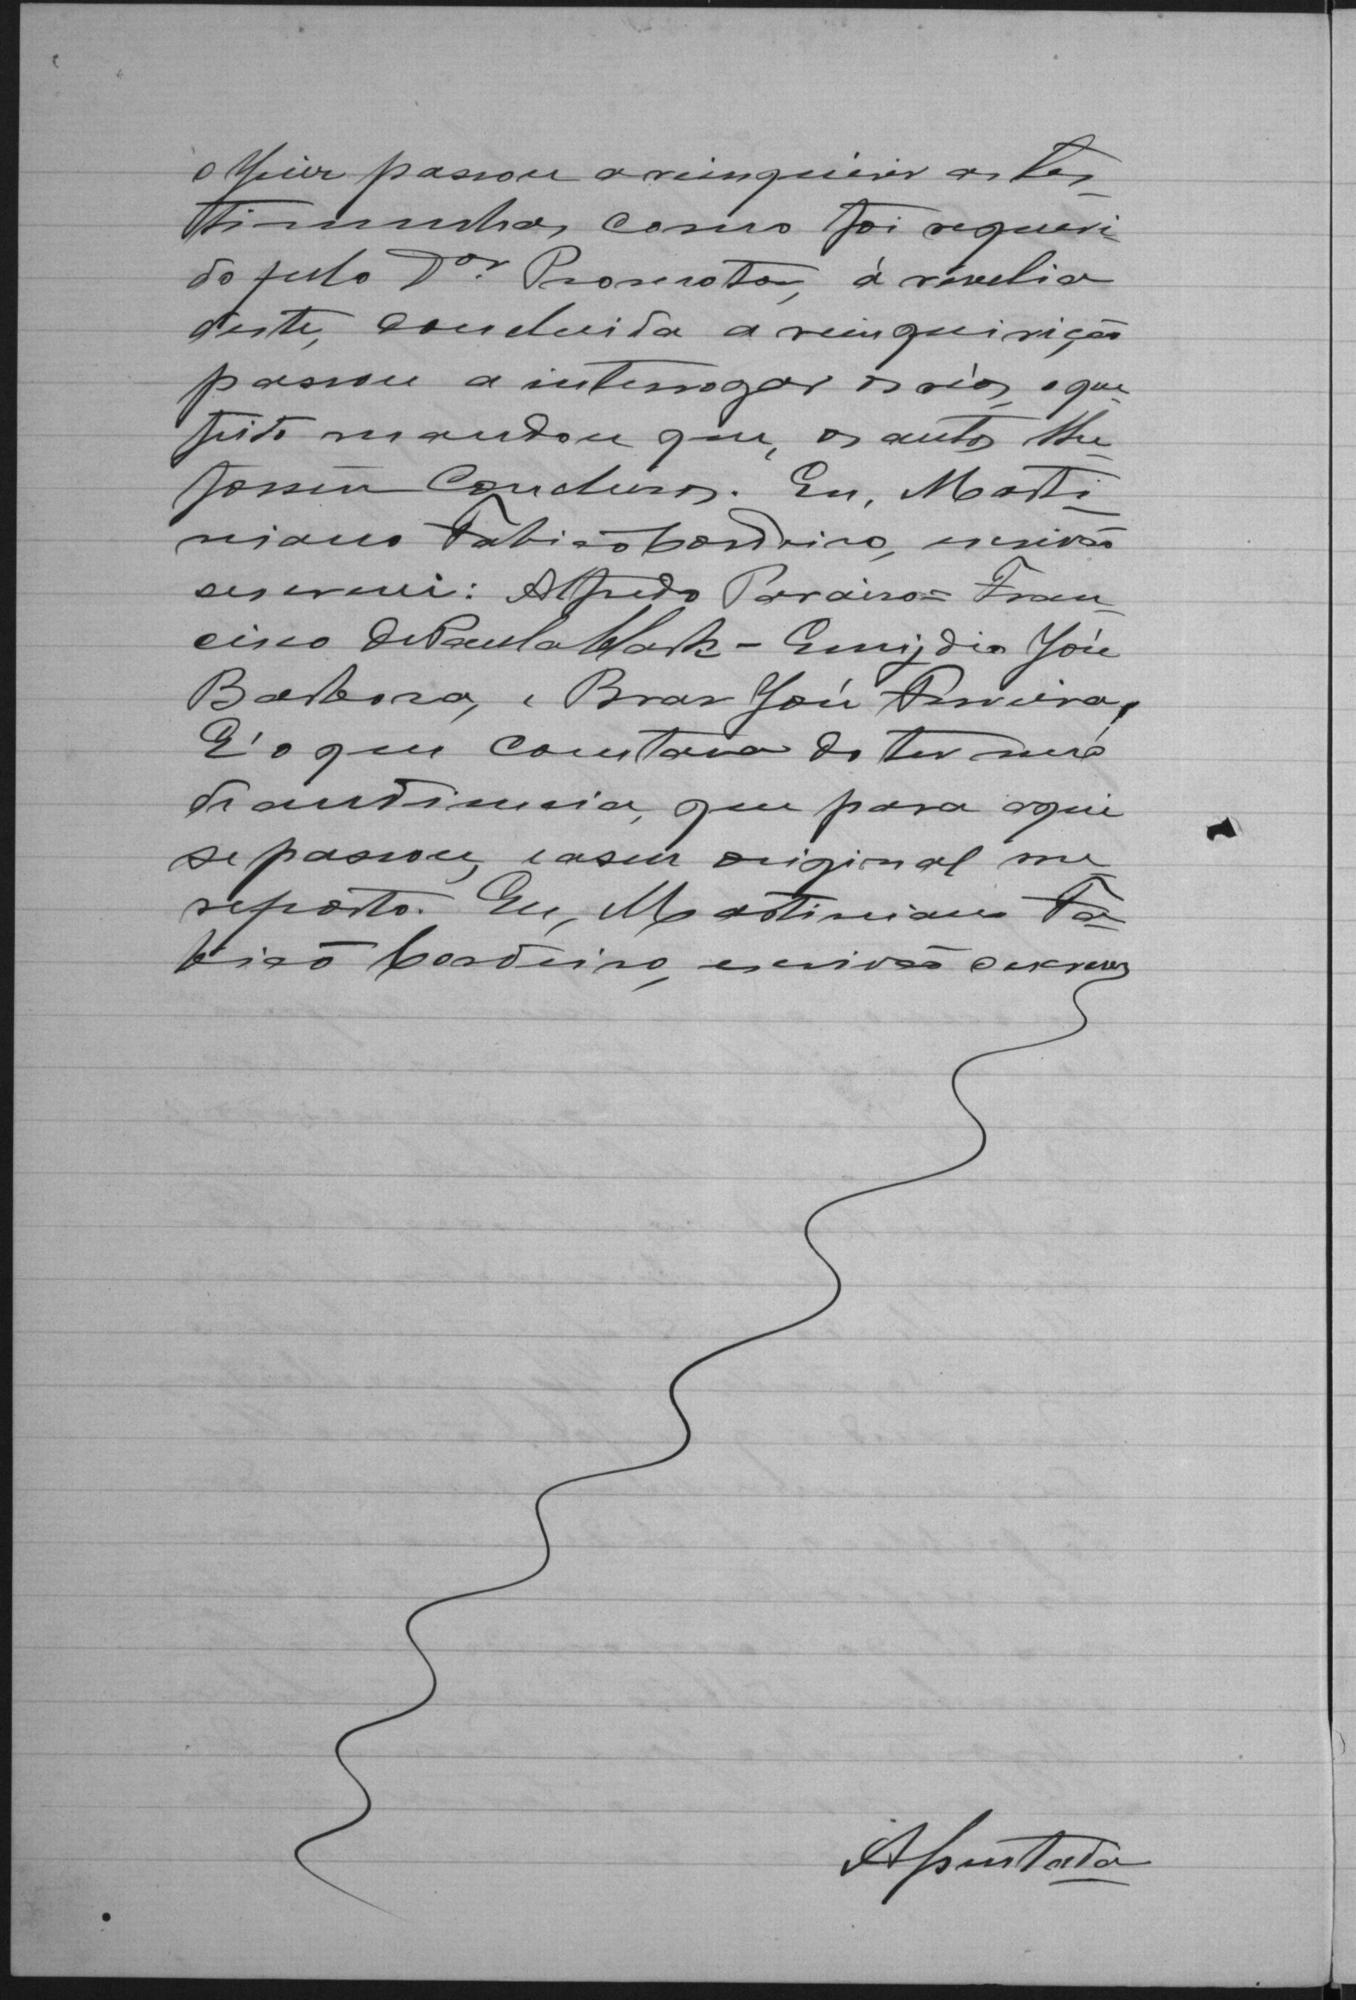 o Juiz passou a reinquirir as tes-
timunhas, como foi requeri-
do pelo Dor. Promotor, á revelia
deste, concluida a reinquirição
passou a interrogar os réos, o que
feito mandou que, os autos lhe
fossem conclusos. Eu, Marti-
niano Fabião Cordeiro, escrivão
escrevi: Alfredo Paraiso = Fran-
cisco de Paula - Emijdio José
Barbosa, e Braz José Ferreira.
E' o que constava do termo
de audiencia, que para aqui
se passou, e a seu original me
reporto. Eu, Martiniano Fa-
bião Cordeiro, escrivão o escrevi
Ajuntada